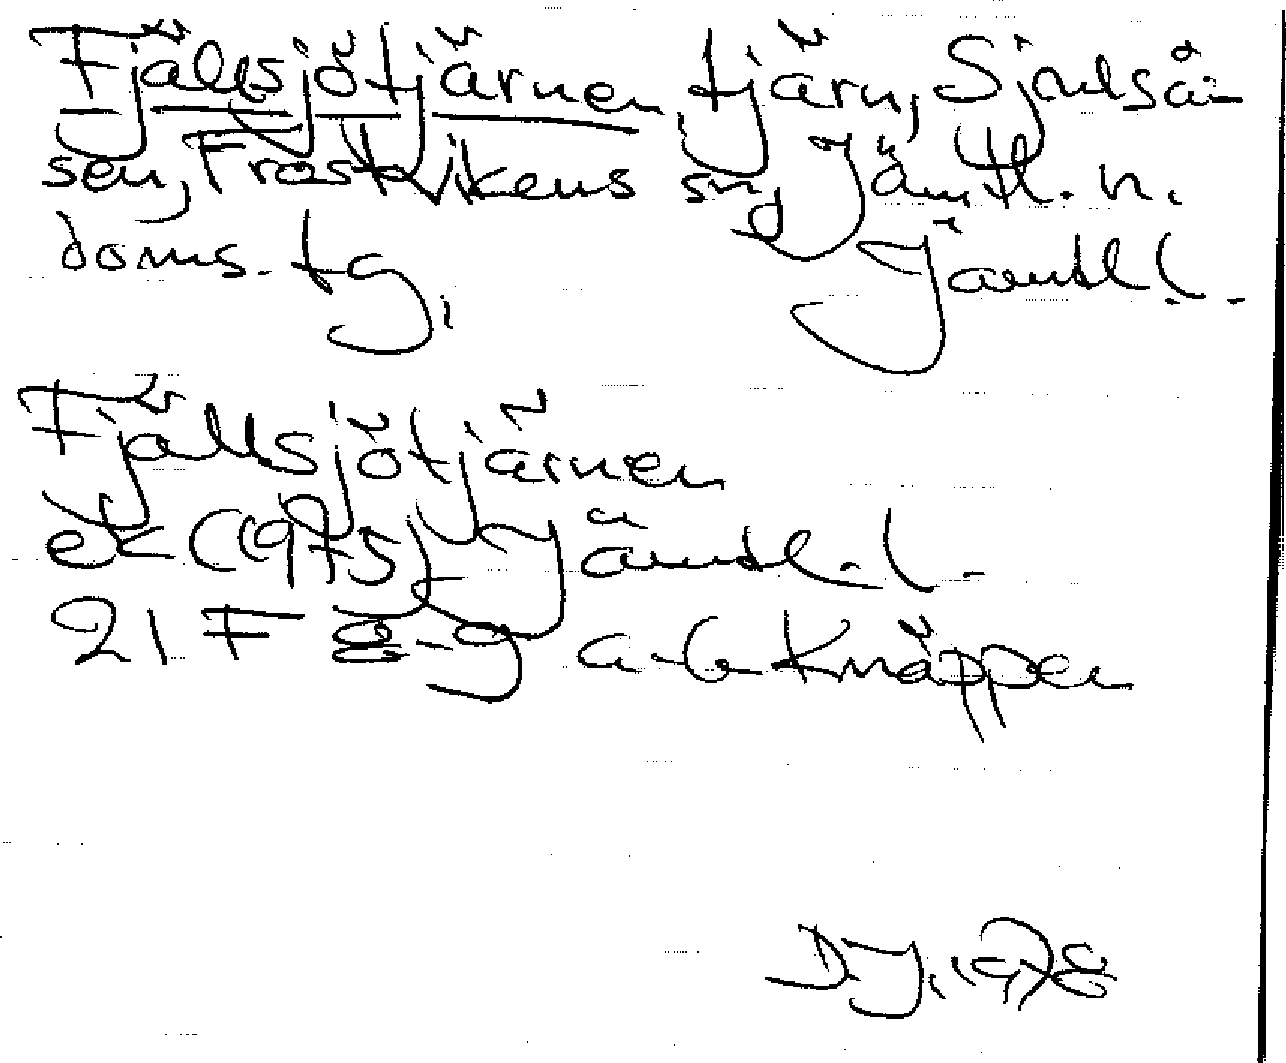 Fjällsjötjärnen, tjärn, Sjoulså-
sen, Frostvikens sn, Jämtl. n.
doms. tg, Jämtl. l.
Fjällsjötjärnen
ek (1975), Jämtl. l.
21 F 8-9 a-b Knäppen
D.J. 1978